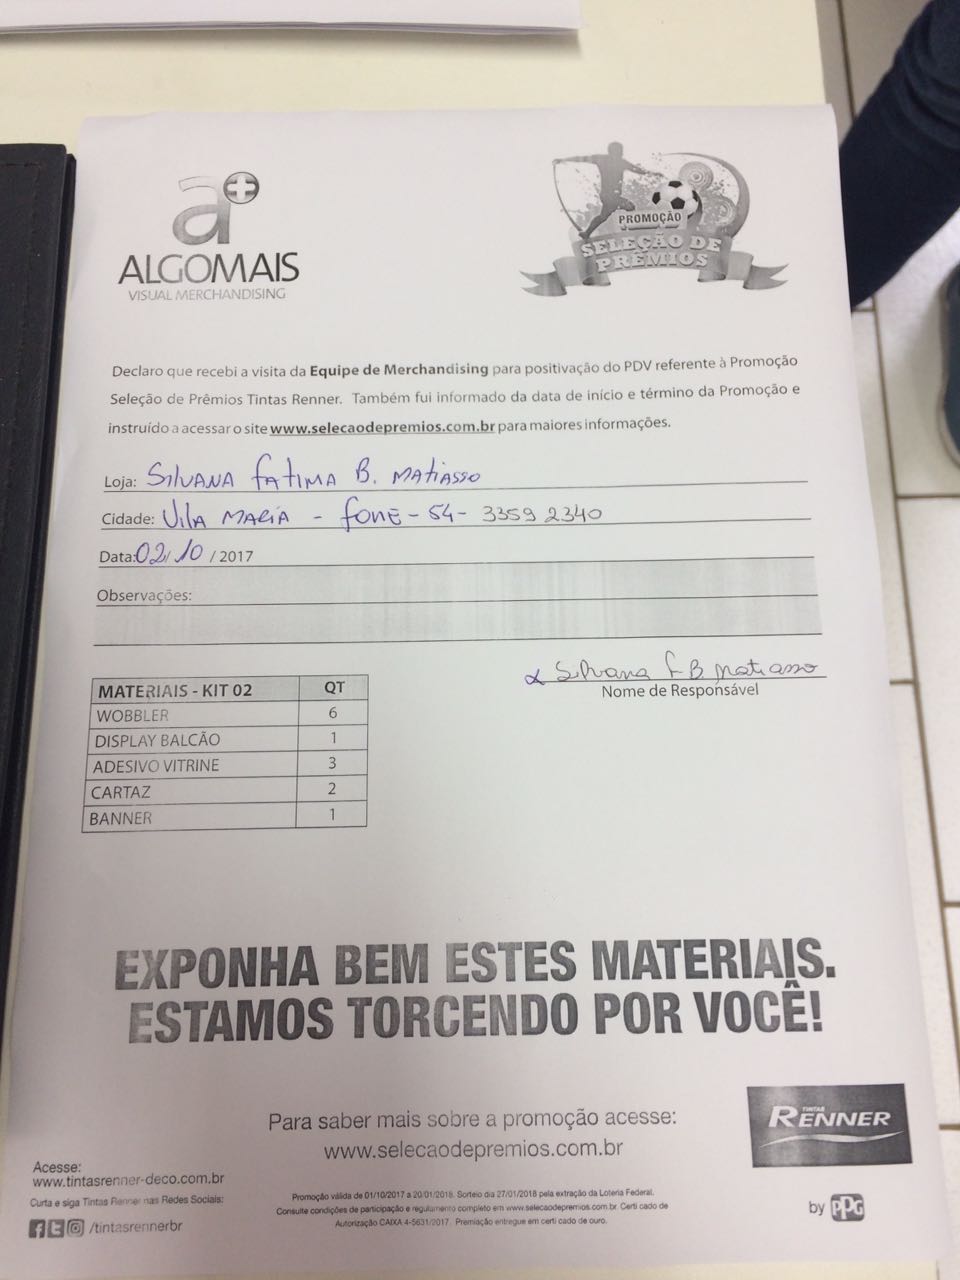 a+
ALGOMAIS
VISUAL MERCHANDISING
PROMOÇÃO
SELEÇÃO DE
PRÊMIOS
Declaro que recebi a visita da Equipe de Merchandising para positivação do PDV referente à Promoção
Seleção de Prêmios Tintas Renner. Também fui informado da data de início e término da Promoção e
instruído a acessar o site www.selecaodepremios.com.br para maiores informações.
Loja: SILVANA FATIMA B. MATIASSO
Cidade: VILA MARIA - FONE - 54 - 3359 2340
Data: 02/10/2017
Observações:
x Silvana F B Matiasso
Nome de Responsável
MATERIAIS - KIT 02 QT
WOBBLER 6
DISPLAY BALCÃO 1
ADESIVO VITRINE 3
CARTAZ 2
BANNER 1
EXPONHA BEM ESTES MATERIAIS.
ESTAMOS TORCENDO POR VOCÊ!
Para saber mais sobre a promoção acesse:
www.selecaodepremios.com.br
TINTAS
RENNER
by PPG
Acesse:
www.tintasrenner-deco.com.br
Curta e siga Tintas Renner nas Redes Sociais:
/tintasrennerbr
Promoção válida de 01/10/2017 a 20/01/2018. Sorteio dia 27/01/2018 pela extração da Loteria Federal.
Consulte condições de participação e regulamento completo em www.selecaodepremios.com.br. Certi cado de
Autorização CAIXA 4-5631/2017. Premiação entregue em certi cado de ouro.